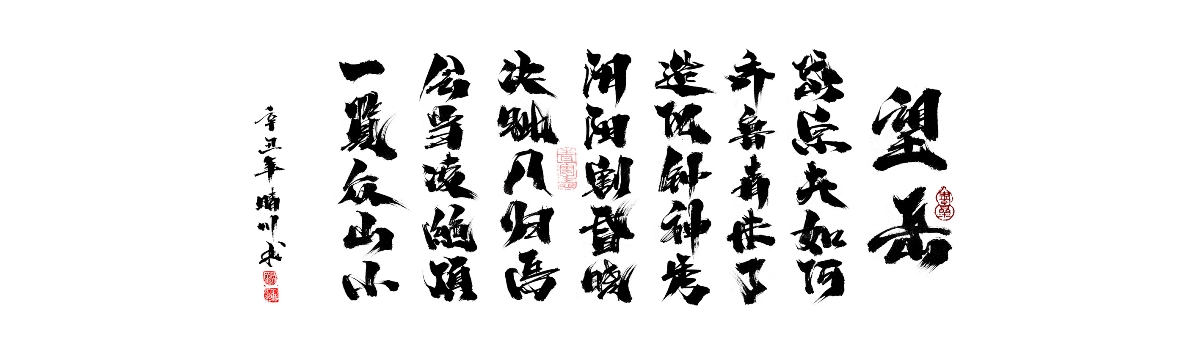 望岳
岱宗夫如何
齐鲁青未了
造化钟神秀
阴阳割昏晓
决眦入归鸟
会当凌绝顶
一览众山小
辛丑年晴川书